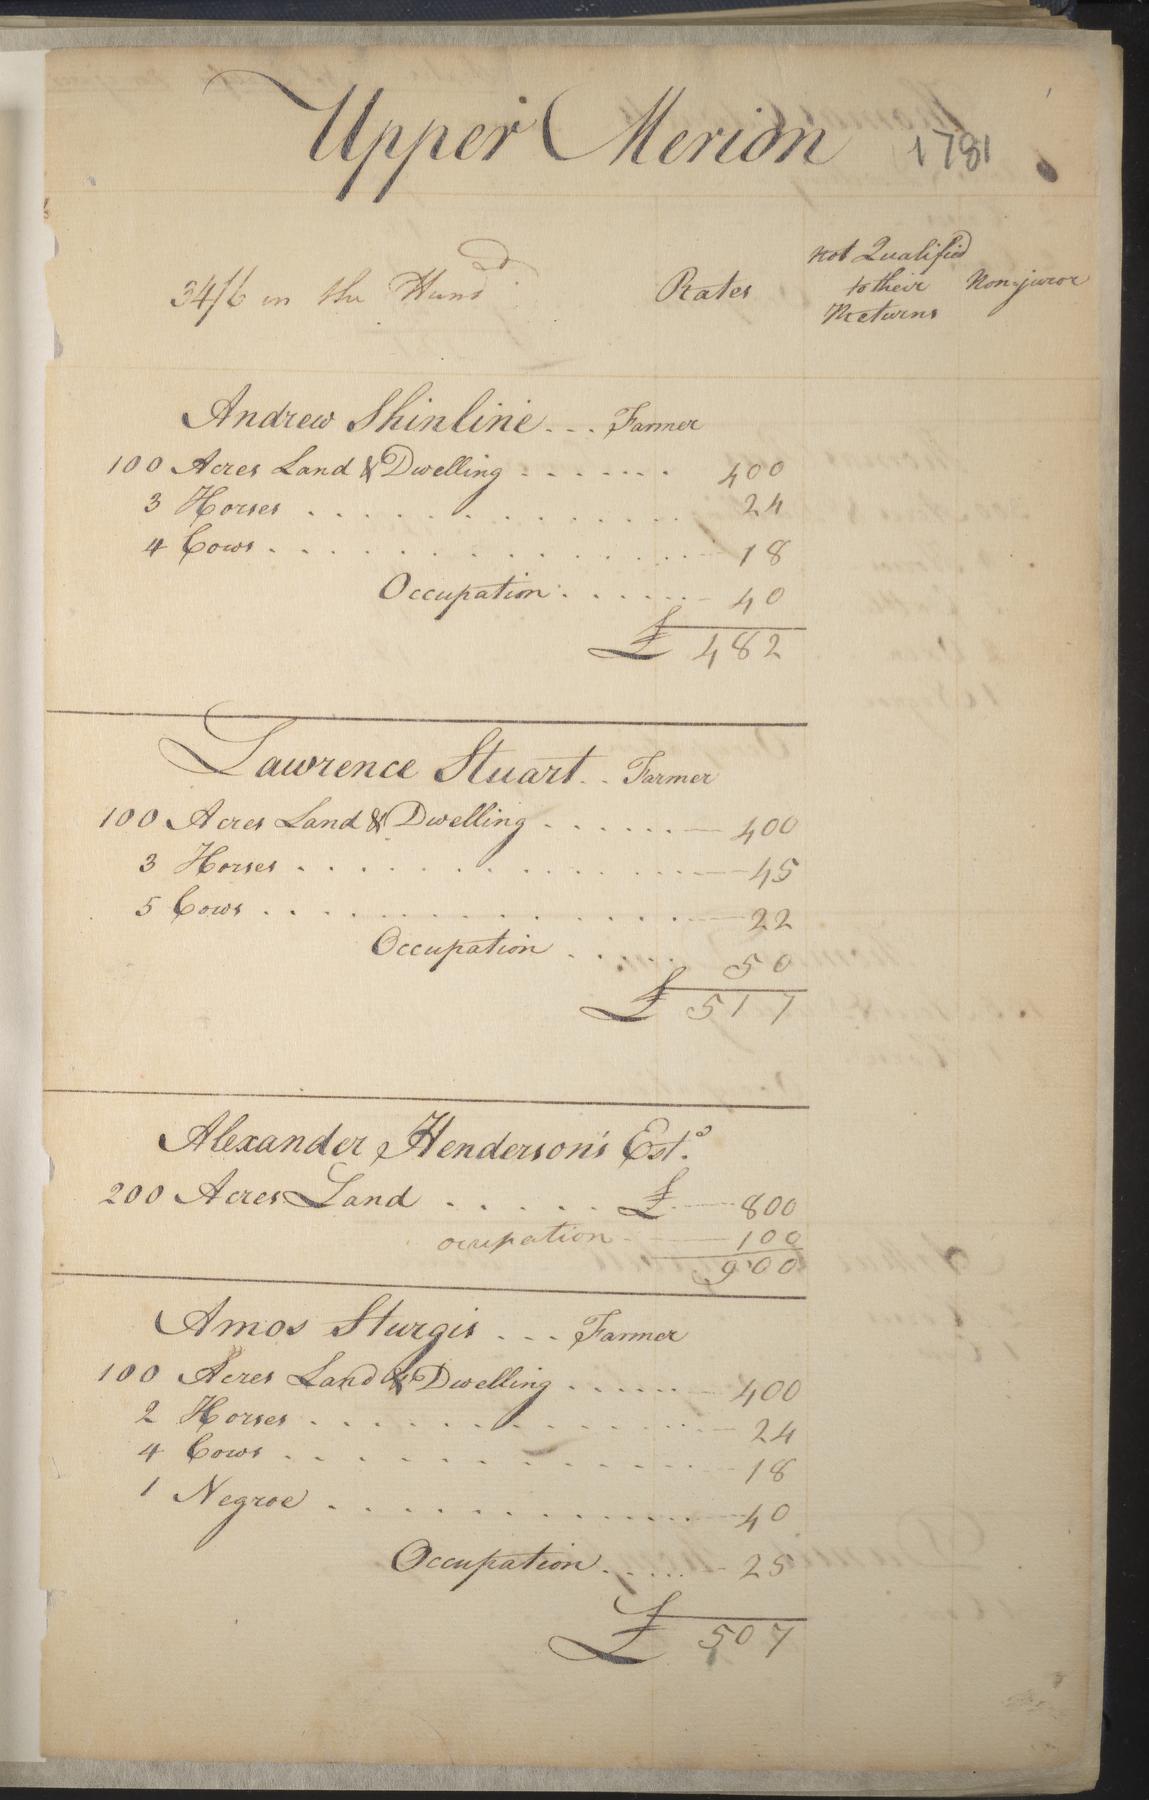 Upper Merion 1781
34/6 in the Hund
Rates
not Qualified
to their
Returns
Non-juror
Andrew Shinline - - - Farmer
100 Acres Land & Dwelling - - - - - - - 400
3 Horses . . . . . . . . . . . . 24
4 Cows . . . . . . . . . . . . 18
Occupation . . . . . . 40
£ 482
Lawrence Stuart - - Farmer
100 Acres Land & Dwelling - - - - - - 400
3 Horses . . . . . . . . . . . . 45
5 Cows . . . . . . . . . . . . 22
Occupation . . . . . 50
£ 517
Alexander Henderson's Est.ᵃ
200 Acres Land . . . . . £ 800
ocupation 100
900
Amos Sturgis - - - Farmer
100 Acres Land & Dwelling - - - - - - 400
2 Horses . . . . . . . . . . . . 24
4 Cows . . . . . . . . . . . . 18
1 Negroe . . . . . . . . . . . 40
Occupation . . . . . . 25
£ 507